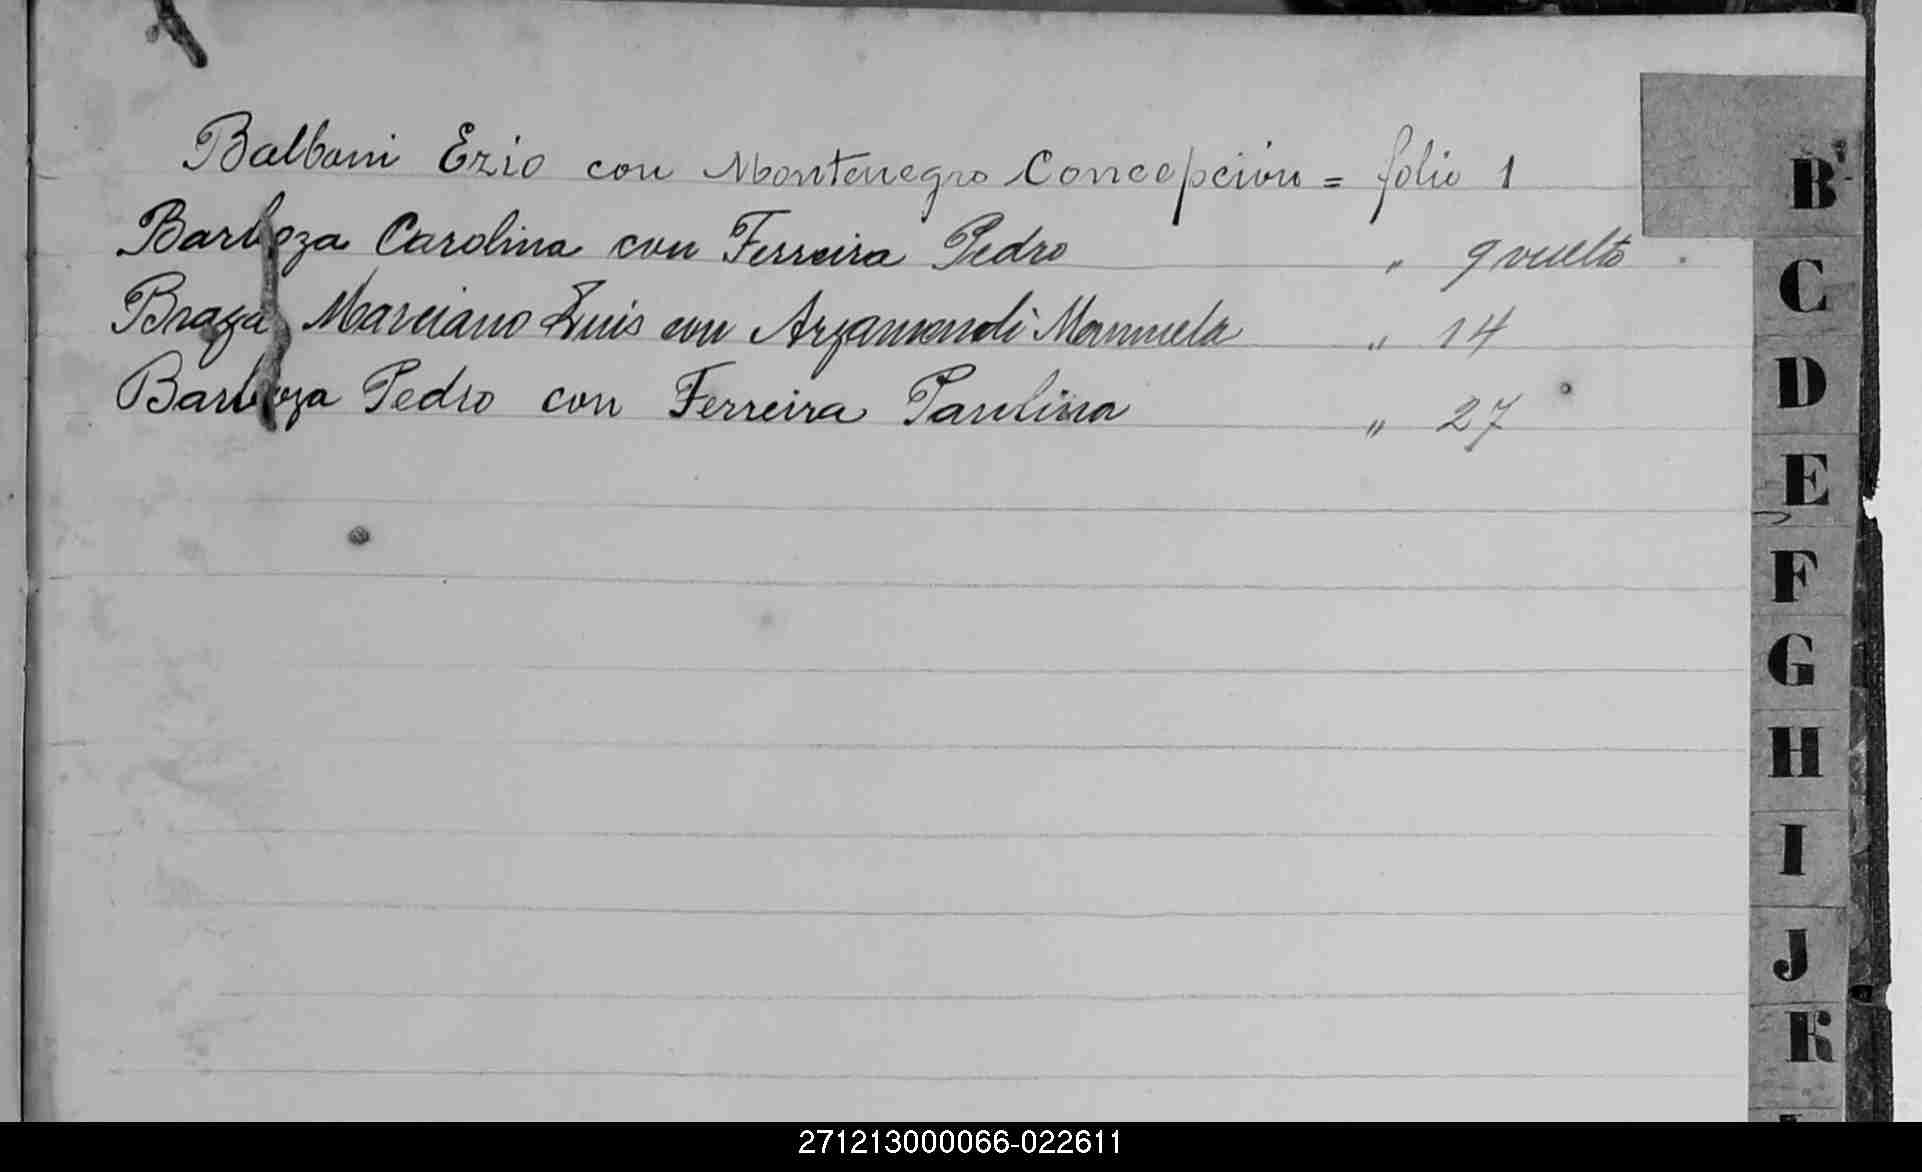 Balboni Ezio con Montenegro Concepción = folio 1
Barboza Carolina con Ferreira Pedro " 9 vuelto
Braga Marciano Luis con Arzamendi Manuela " 14
Barboza Pedro con Ferreira Paulina " 27
B
C
D
E
F
G
H
I
J
K
271213000066-022611